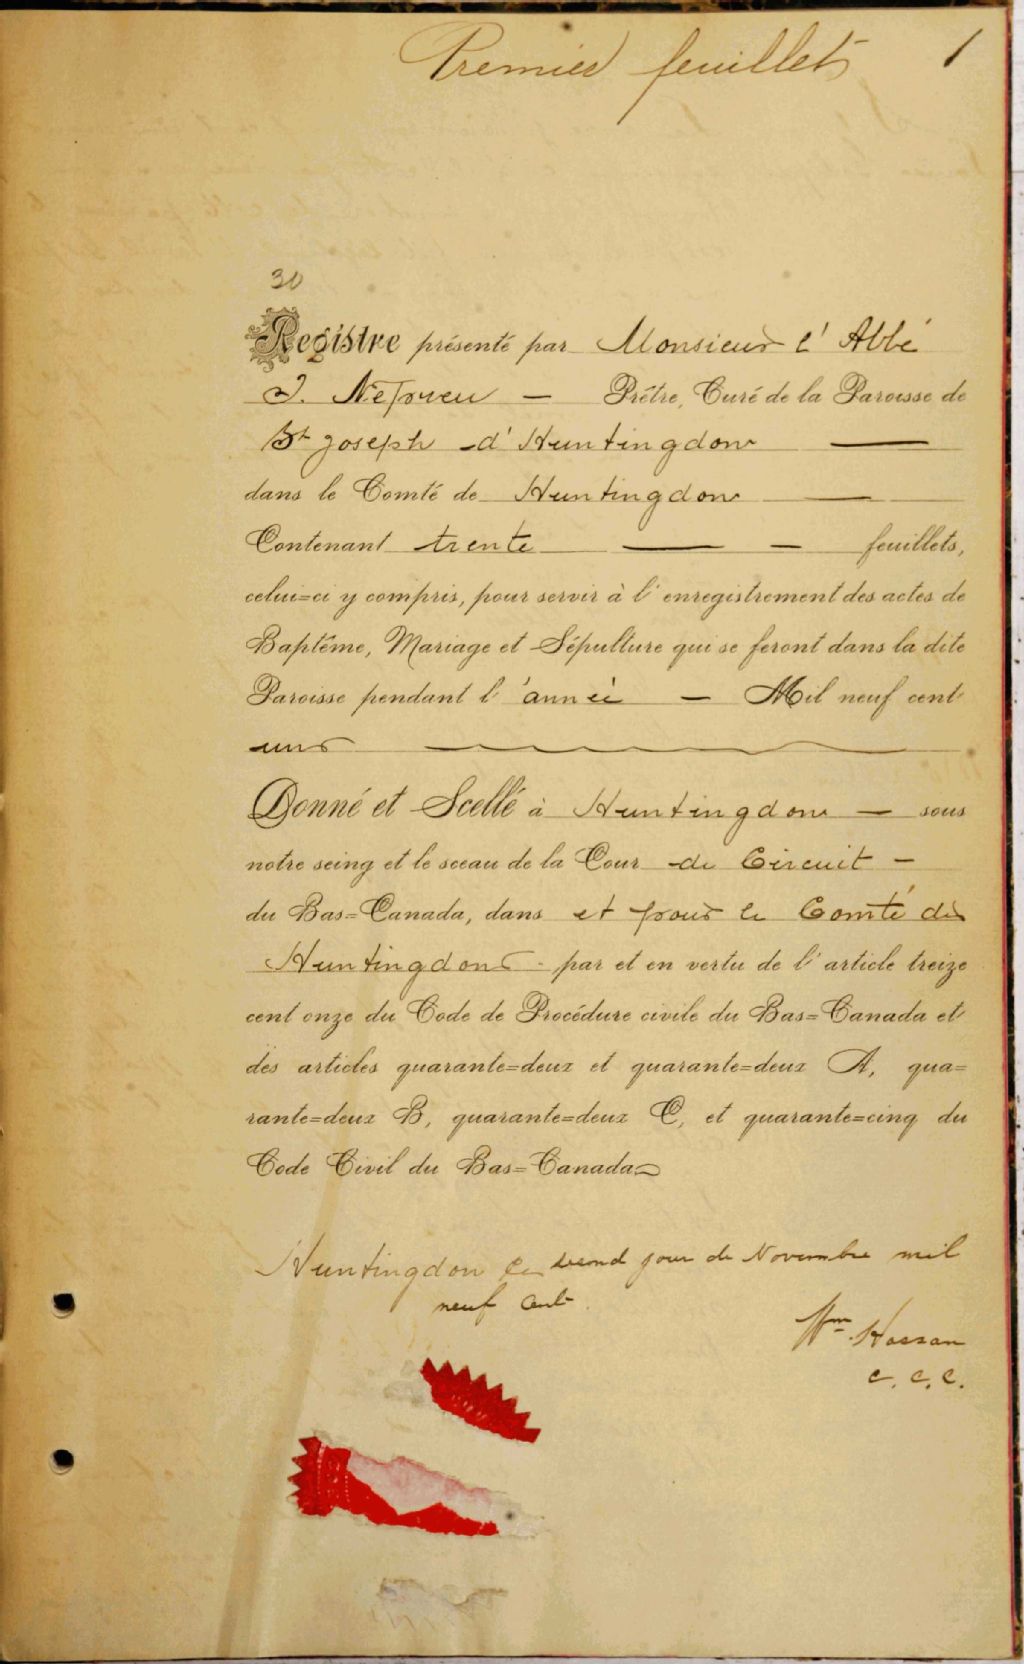 Premier feuillet 1
30
Registre présenté par Monsieur l'Abbé
J. Nepveu — Prêtre, Curé de la Paroisse de
St Joseph d'Huntingdon —
dans le Comté de Huntingdon —
Contenant trente — — feuillets,
celui=ci y compris, pour servir à l'enregistrement des actes de
Baptême, Mariage et Sépulture qui se feront dans la dite
Paroisse pendant l'année — Mil neuf cent
un
Donné et Scellé à Huntingdon — sous
notre seing et le sceau de la Cour de Circuit —
du Bas=Canada, dans et pour le Comté de
Huntingdon - par et en vertu de l'article treize
cent onze du Code de Procédure civile du Bas=Canada et
des articles quarante=deux et quarante=deux A, qua=
rante=deux B, quarante=deux C, et quarante=cinq du
Code Civil du Bas=Canada
Huntingdon ce second jour de Novembre mil
neuf cent.
Wm. Hassan
C. C. C.